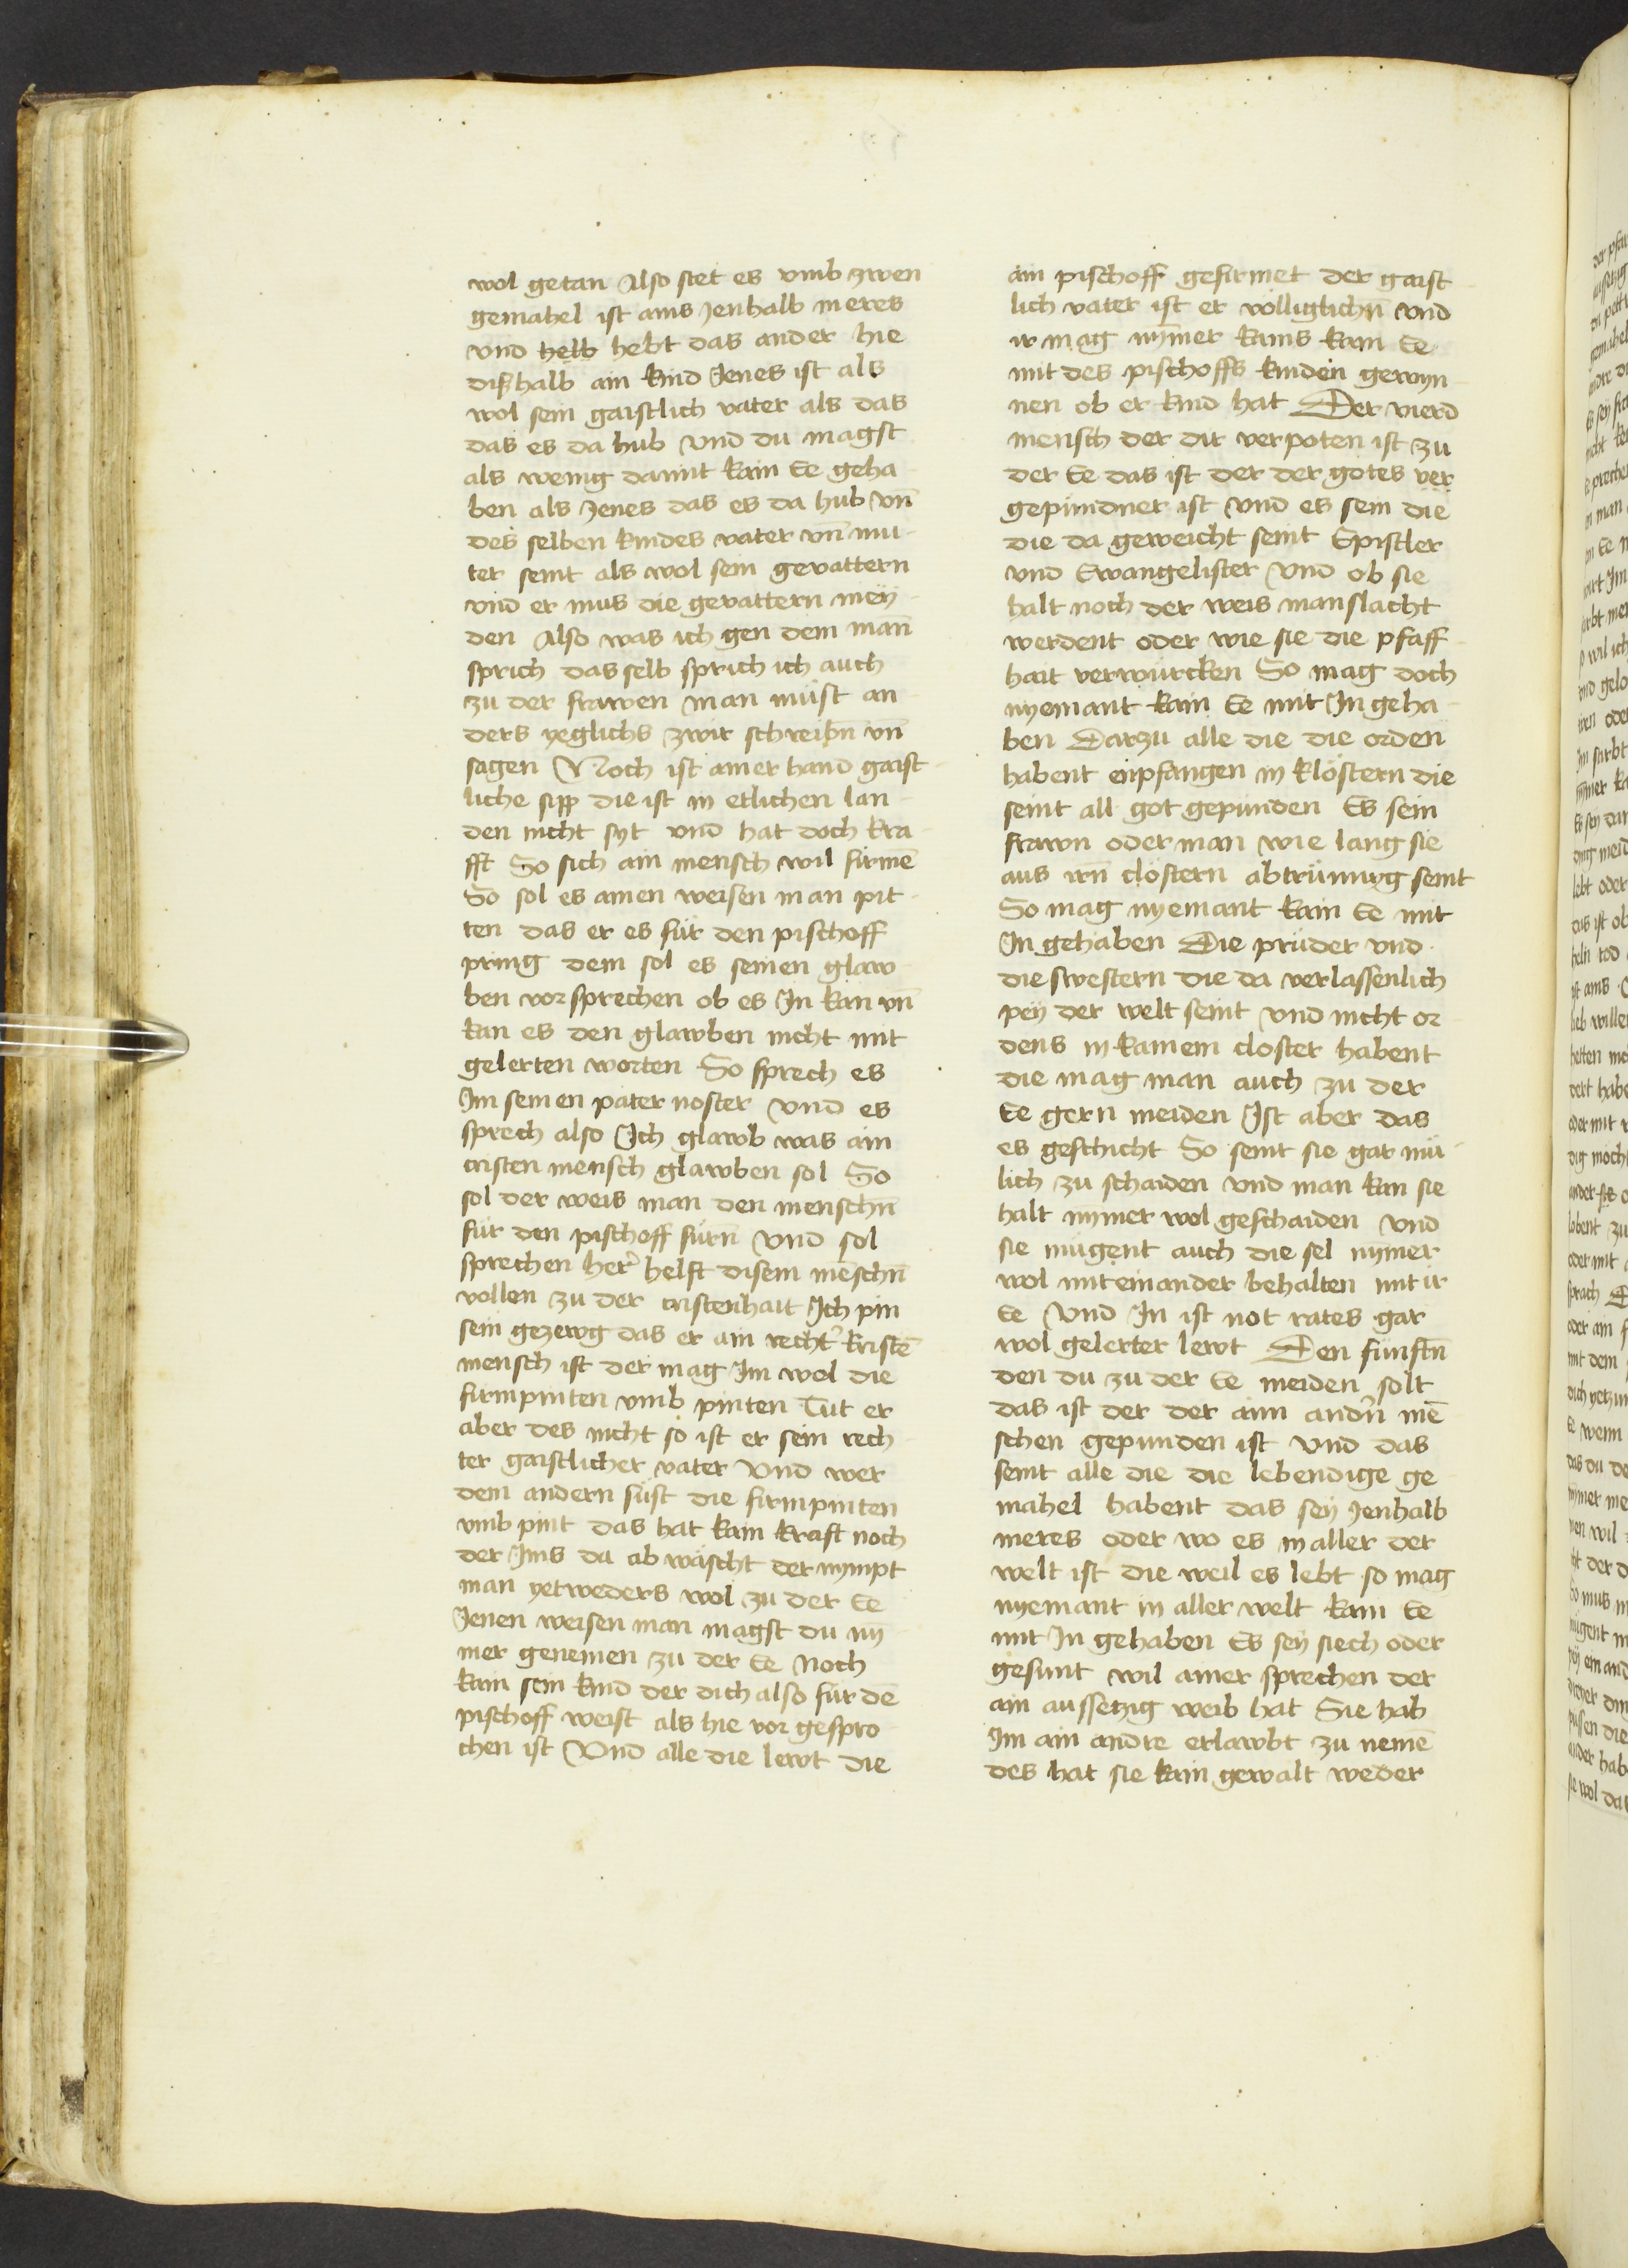 wol getan Also stet es vmb zwen
gemahel ist ains Jenhalb meres
vnd helb hebt das ander hie
dißhalb ain kind Jenes ist als
wol sein gaistlich vater als das
das es da hub vnd du magst
als wenig damit kain Ee geha-
ben als Jenes das es da hub vn̄
des selben kindes vater vn̄ mu-
ter seint als wol sein gevattern
vnd er mus die gevattern mey-
den Also was ich gen dem man̄
sprich dasselb sprich ich auch
zu der frawen man müst an
ders yeglichs zwir schreibn̄ vn̄
sagen Noch ist ainer hand gaist-
liche sipp die ist in etlichen lan-
den nicht syt vnd hat doch kra-
fft So sich ain mensch wil firmē
So sol es ainen weisen man pit-
ten das er es für den pischoff
pring dem sol es seinen glaw-
ben vorsprechen ob es Jn kan vn̄
kan es den glawben nicht mit
gelerten worten So sprech es
Jm seinen pater noster vnd es
sprech also Jch glawb was ain
cristen mensch glawben sol So
sol der weis man den menschn̄
für den pischoff fürn̄ vnd sol
sprechen her̄ helft disem mēschn̄
vollen zu der cristenhait Jch pin
sein gezewg das er ain recht' kristē
mensch ist der mag Jm wol die
firmpinten vmb pinten Tut er
aber des nicht so ist er sein rech-
ter gaistlicher vater Vnd wer
dem andern süst die firmpinten
vmb pint das hat kain kraft noch
der Jms da ab wäscht der nympt
man yetweders wol zu der Ee
Jenen weisen man magst du ny
mer genemen zu der Ee Noch
kain sein kind der dich also für dē
pischoff weist als hie vor gespro-
chen ist Vnd alle die lewt die
ain pischoff gefirmet der gaist-
lich vater ist er völliglichn̄ vnd
ir mag nym̄er kains kain Ee
mit des pischoffs kinden gewyn-
nen ob er kind hat Der vierd
mensch der dir verpoten ist zu
der Ee das ist der der gotes ver
gepundner ist vnd es sein die
die da geweicht seint Epistler
vnd Ewangelister vnd ob sie
halt noch der weis manslacht
werdent oder wie sie die pfaff-
hait verwürcken So mag doch
nyemant kain Ee mit Jn geha-
ben Darzu alle die die orden
habent enpfangen in klöstern die
seint all got gepunden Es sein
frawn oder man wie lang sie
aus irn̄ clöstern abtrünnyg seint
So mag nyemant kain Ee mit
Jn gehaben Die prüder vnd
die swestern die da verlassenlich
pey der welt seint vnd nicht or
dens in kainem closter habent
die mag man auch zu der
Ee gern meiden Ist aber das
es geschicht So seint sie gar mü-
lich zu schaiden vnd man kan sie
halt nym̄er wol geschaiden vnd
sie mügent auch die sel nymer
wol miteinander behalten mit ir
Ee Vnd Jn ist not rates gar
wol gelerter lewt Den fünftn̄
den du zu der Ee meiden solt
das ist der der aim andn̄ mē
schen gepunden ist vnd das
seint alle die die lebendige ge
mahel habent das sey Jenhalb
meres oder wo es in aller der
welt ist die weil es lebt so mag
nyemant in aller welt kain Ee
mit Jn gehaben Es sey siech oder
gesunt wil ainer sprechen der
ain aussetzig weib hat Sie hab
Jm ain andre erlawbt zu nemē
des hat sie kain gewalt weder